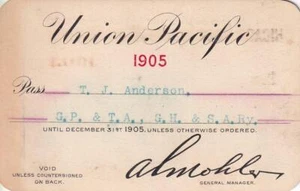 Union Pacific
1905
Pass T. J. Anderson,
G.P. & T.A., G.H. & S.A.Ry.
UNTIL DECEMBER 31ST 1905, UNLESS OTHERWISE ORDERED.
VOID
UNLESS COUNTERSIGNED
ON BACK.
A L Mohler
GENERAL MANAGER.